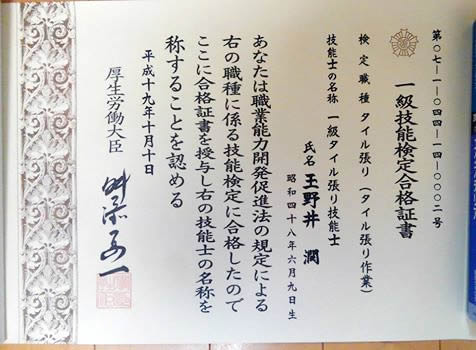 第〇七―一―〇四四―一四―〇〇〇二号
一級技能検定合格証書
検定職種 タイル張り(タイル張り作業)
技能士の名称 一級タイル張り技能士
氏名 玉野井 潤
昭和四十八年六月九日生
あなたは職業能力開発促進法の規定による
右の職種に係る技能検定に合格したので
ここに合格証書を授与し右の技能士の名称を
称することを認める
平成十九年十月十日
厚生労働大臣 舛添要一